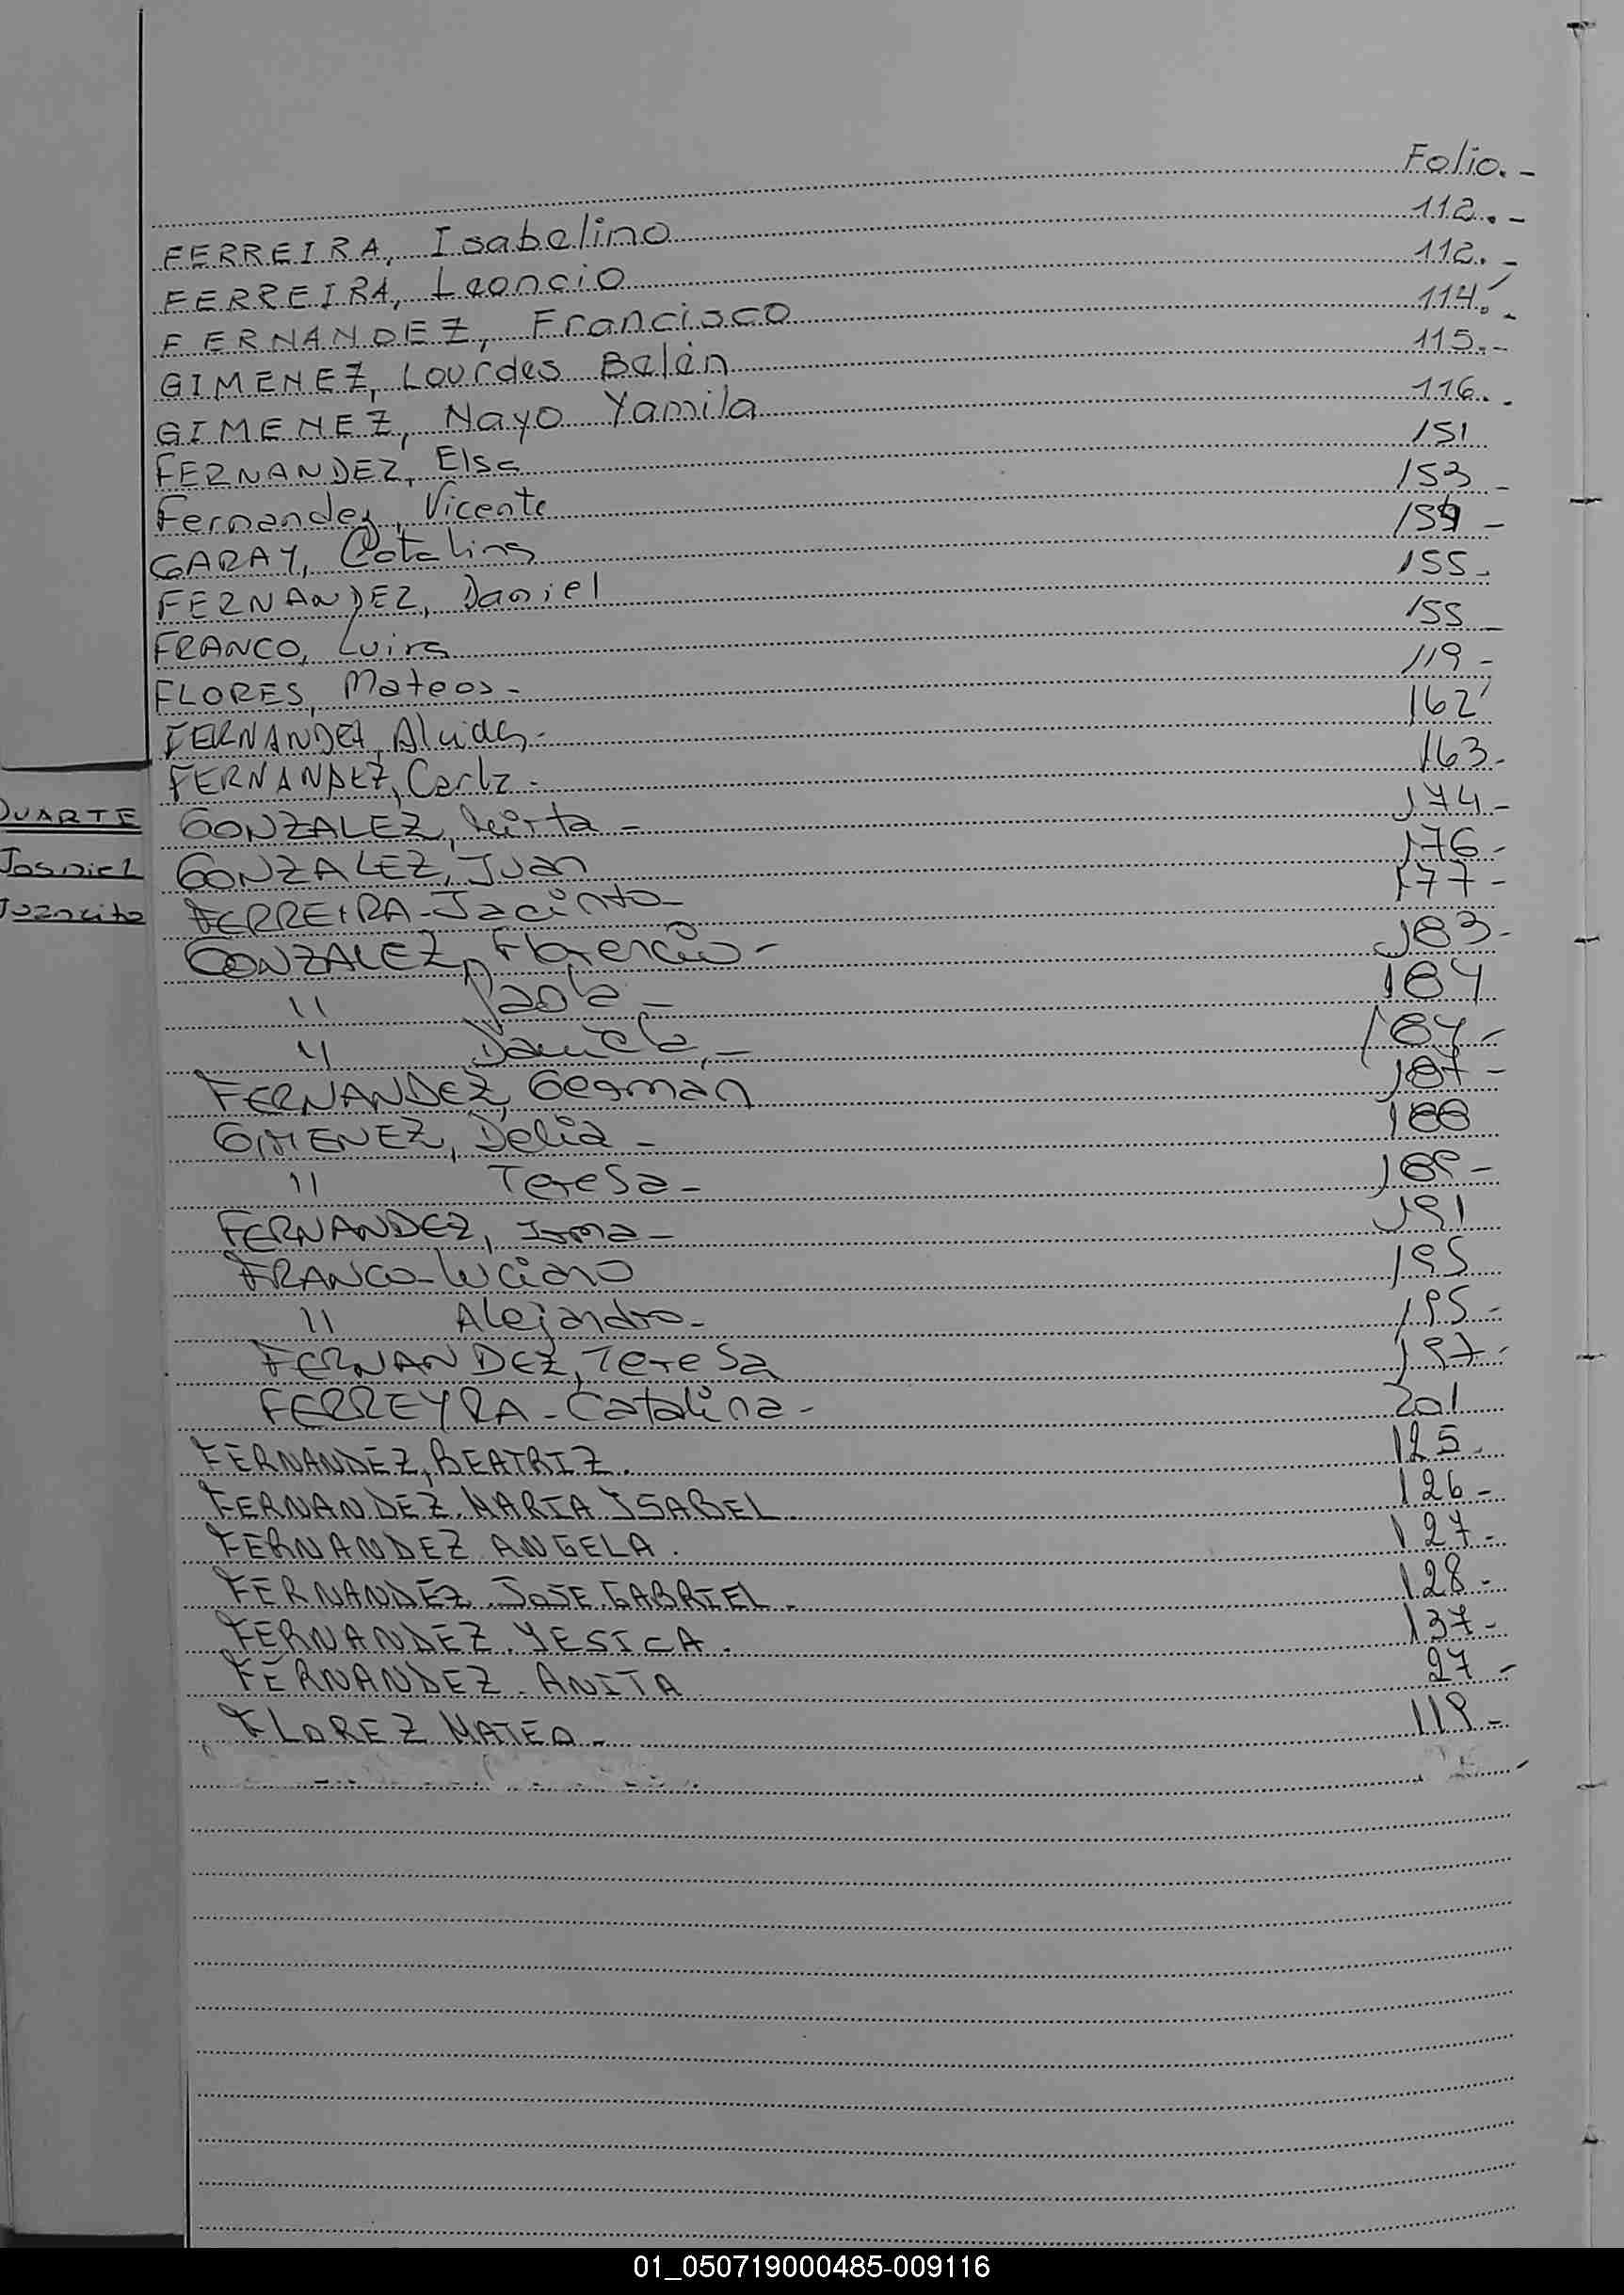 Folio.-
FERREIRA, Isabelino 112.-
FERREIRA, Leoncio 112.-
FERNANDEZ, Francisco 114.-
GIMENEZ, Lourdes Belén 115.-
GIMENEZ, Nayo Yamila 116.-
FERNANDEZ, Elsa 151
Fernandez, Vicente 153-
GARAY, Catalina 154-
FERNANDEZ, Daniel 155-
FRANCO, Luisa 155-
FLORES, Mateos- 119-
FERNANDEZ, 162
FERNANDEZ, Carla- 163-
GONZALEZ, Mirta- 174-
GONZALEZ, Juan 176-
FERREIRA-Jacinto- 177-
GONZALEZ, Florencio- 183-
" Paola- 184
" Daniela,- 184-
FERNANDEZ, German 187-
GIMENEZ, Delia- 188
" Teresa- 189-
FERNANDEZ, Irma- 191
FRANCO-Luciano 195
" Alejandro- 195-
FERNANDEZ, Teresa 197-
FERREYRA-Catalina- 201
FERNANDEZ, BEATRIZ. 125-
FERNANDEZ. MARIA ISABEL. 126-
FERNANDEZ ANGELA. 127-
FERNANDEZ. JOSE GABRIEL- 128-
FERNANDEZ. YESICA. 137-
FERNANDEZ-ANITA 27-
FLOREZ MATEO- 119-
DUARTE
01_050719000485-009116